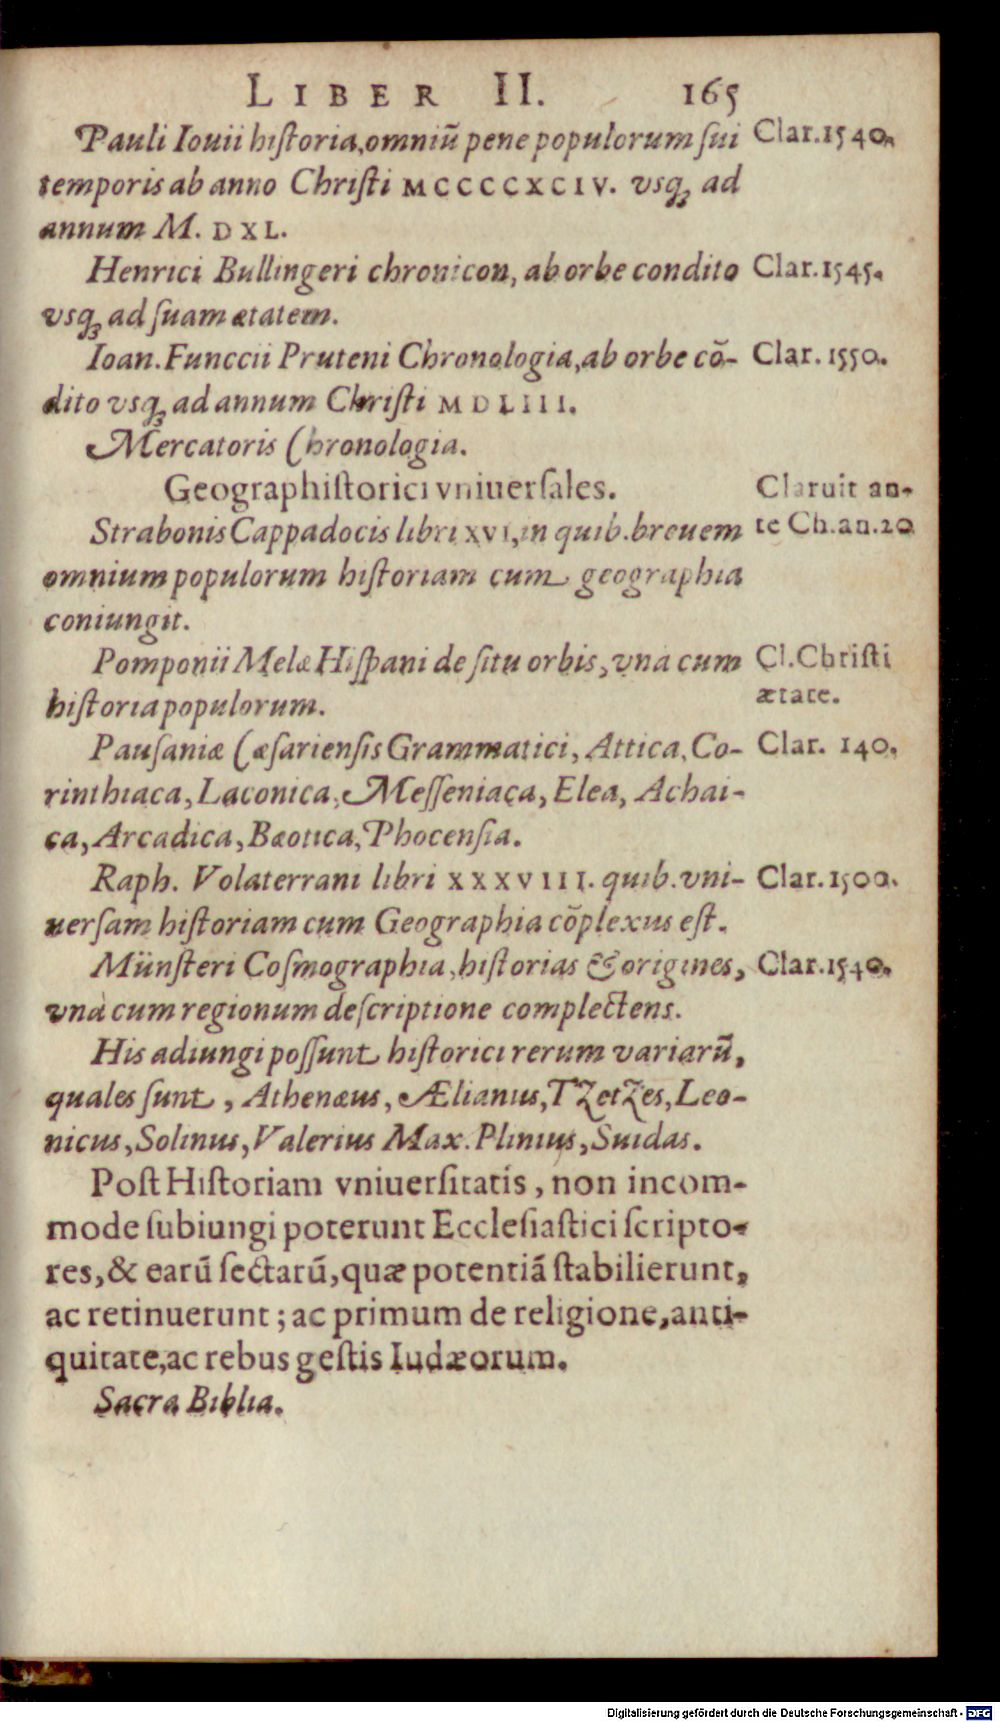 LIBER II. 165
Pauli Iouii hiſtoria, omniū pene populorum ſui Clar.1540.
temporis ab anno Chriſti MCCCCXCIV. vsq; ad
annum M. DXL.
Henrici Bullingeri chronicon, ab orbe condito Clar.1545.
vsq; ad ſuam ætatem.
Ioan. Funccii Pruteni Chronologia, ab orbe cō- Clar. 1550.
dito vsq; ad annum Chriſti MDLIII.
Mercatoris Chronologia.
Geographiſtorici vniuerſales. Claruit an-
Strabonis Cappadocis libri XVI, in quib. breuem te Ch.an.20
omnium populorum hiſtoriam cum geographia
coniungit.
Pomponii Melæ Hiſpani de ſitu orbis, vna cum Cl.Chriſti
hiſtoria populorum. ætate.
Pauſaniæ Cæſarienſis Grammatici, Attica, Co- Clar. 140.
rinthiaca, Laconica, Meſſeniaca, Elea, Achai-
ca, Arcadica, Bæotica, Phocenſia.
Raph. Volaterrani libri XXXVIII. quib. vni- Clar.1500.
uerſam hiſtoriam cum Geographia cōplexus eſt.
Münſteri Coſmographia, hiſtorias & origines, Clar.1540.
vnà cum regionum deſcriptione complectens.
His adiungi poſſunt hiſtorici rerum variarū,
quales ſunt, Athenæus, Ælianus, TZetZes, Leo-
nicus, Solinus, Valerius Max. Plinius, Suidas.
Poſt Hiſtoriam vniuerſitatis, non incom-
mode ſubiungi poterunt Eccleſiaſtici ſcripto-
res, & earū ſectarū, quæ potentiā ſtabilierunt,
ac retinuerunt; ac primum de religione, anti-
quitate, ac rebus geſtis Iudæorum.
Sacra Biblia.
Digitalisierung gefördert durch die Deutsche Forschungsgemeinschaft - DFG